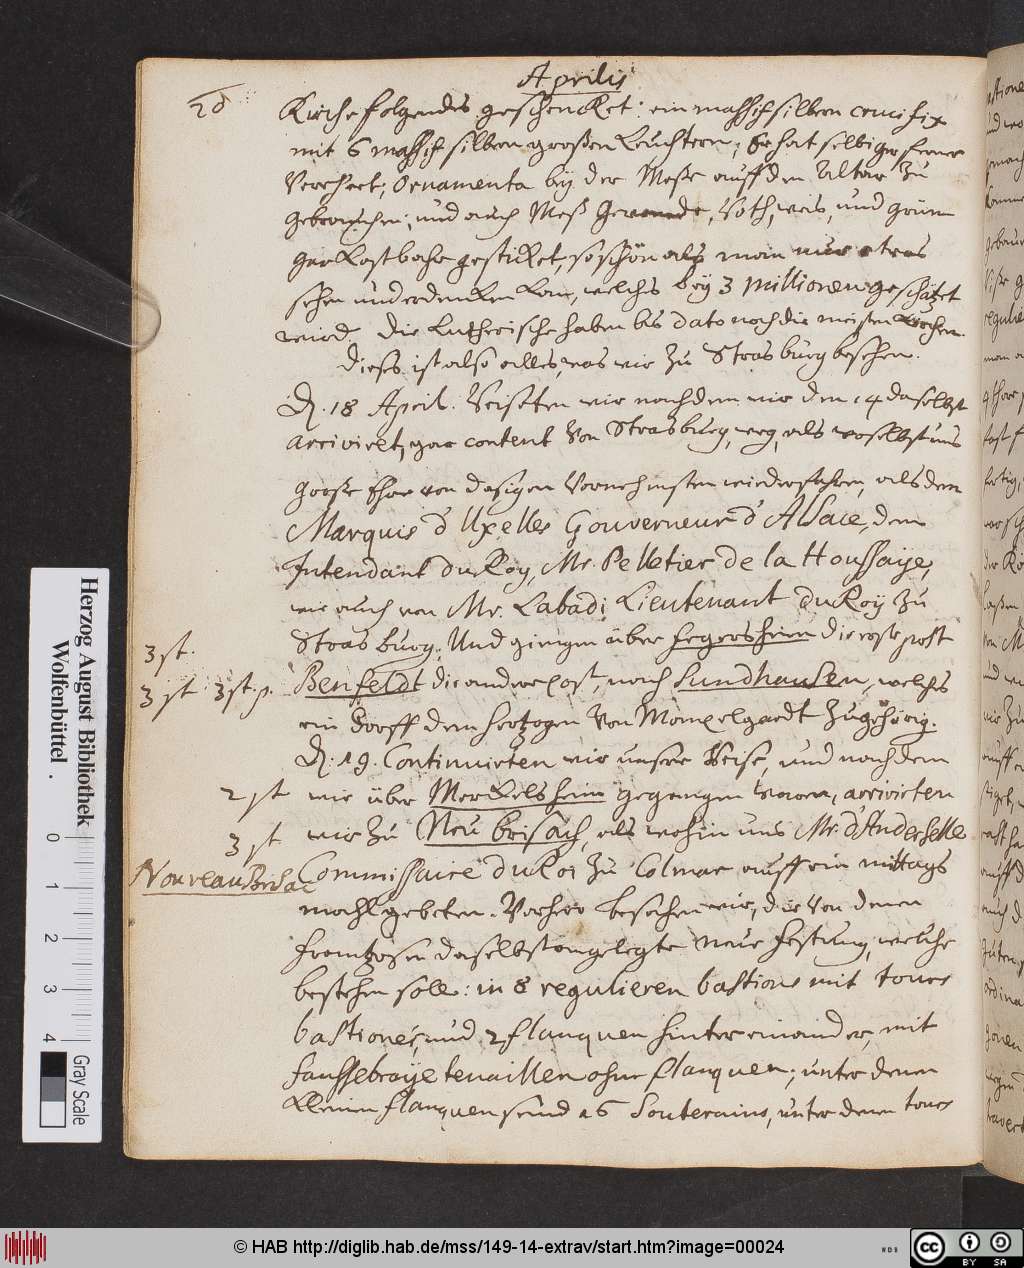 Aprilis
20
Kirche folgendes geschencket: ein massif silbern crucifix
mit 6 massif silbern großen Leuchtern; Er hat selbiger ferner
Verehret, Ornamenta bey der Meße auff den Altar zu
gebrauchen; und auch Meß Gewande, Roth, weis, und grün
gar Kostbahr gesticket, so schön als man nur etwas
sehen und erdencken kan, welches bey 3 Millionen geschätzt
wird. Die Lutherische haben bis dato noch die meisten Kirchen.
Dieses ist also alles, was wir zu Strasburg besehen.
D. 18 April. Reiseten wir nachdem wir den 14 daselbst
arriviret, gar content von Strasburg, weg, als woselbst uns
große Ehre von dasigen Vornehmsten wiederfahren, als dem
Marquis d'Uxelles Gouverneur d'Alsace, dem
Intendant du Roy, Mr. Pelletier de la Houssaye,
wie auch von Mr. Labadi Lieutenant du Roy zu
Strasburg. Und gingen über Fegersheim die erste post
3 st.
Benfeldt die andere post, nach Sundhausen, welches
3 st. 3 st. p.
ein Dorff dem Hertzogen von Mompelgardt zugehörig.
D. 19. Continuirten wir unsere Reise, und nachdem
2 st wir über Merkelsheim gegangen waren, arrivirten
3 st wir zu Neu brisach, als wohin uns Mr. d'Anderselle
Nouveau Brisac
Commissaire du Roi zu Colmar auff ein mittags
mahl gebeten. Vorhero besahen wir, die von denen
Frantzosen daselbst angelegte Neue Festung, welche
bestehen soll: in 8 regulieren bastions mit tours
bastionés, und 2 flanquen hinter einander, mit
faussebraye tenaillen ohne flanquen; unter denen
kleinen flanquen seind 16 Souterains, unter denen tours
Herzog August Bibliothek
Wolfenbüttel
0 1 2 3 4
Gray Scale
© HAB http://diglib.hab.de/mss/149-14-extrav/start.htm?image=00024
CC BY SA